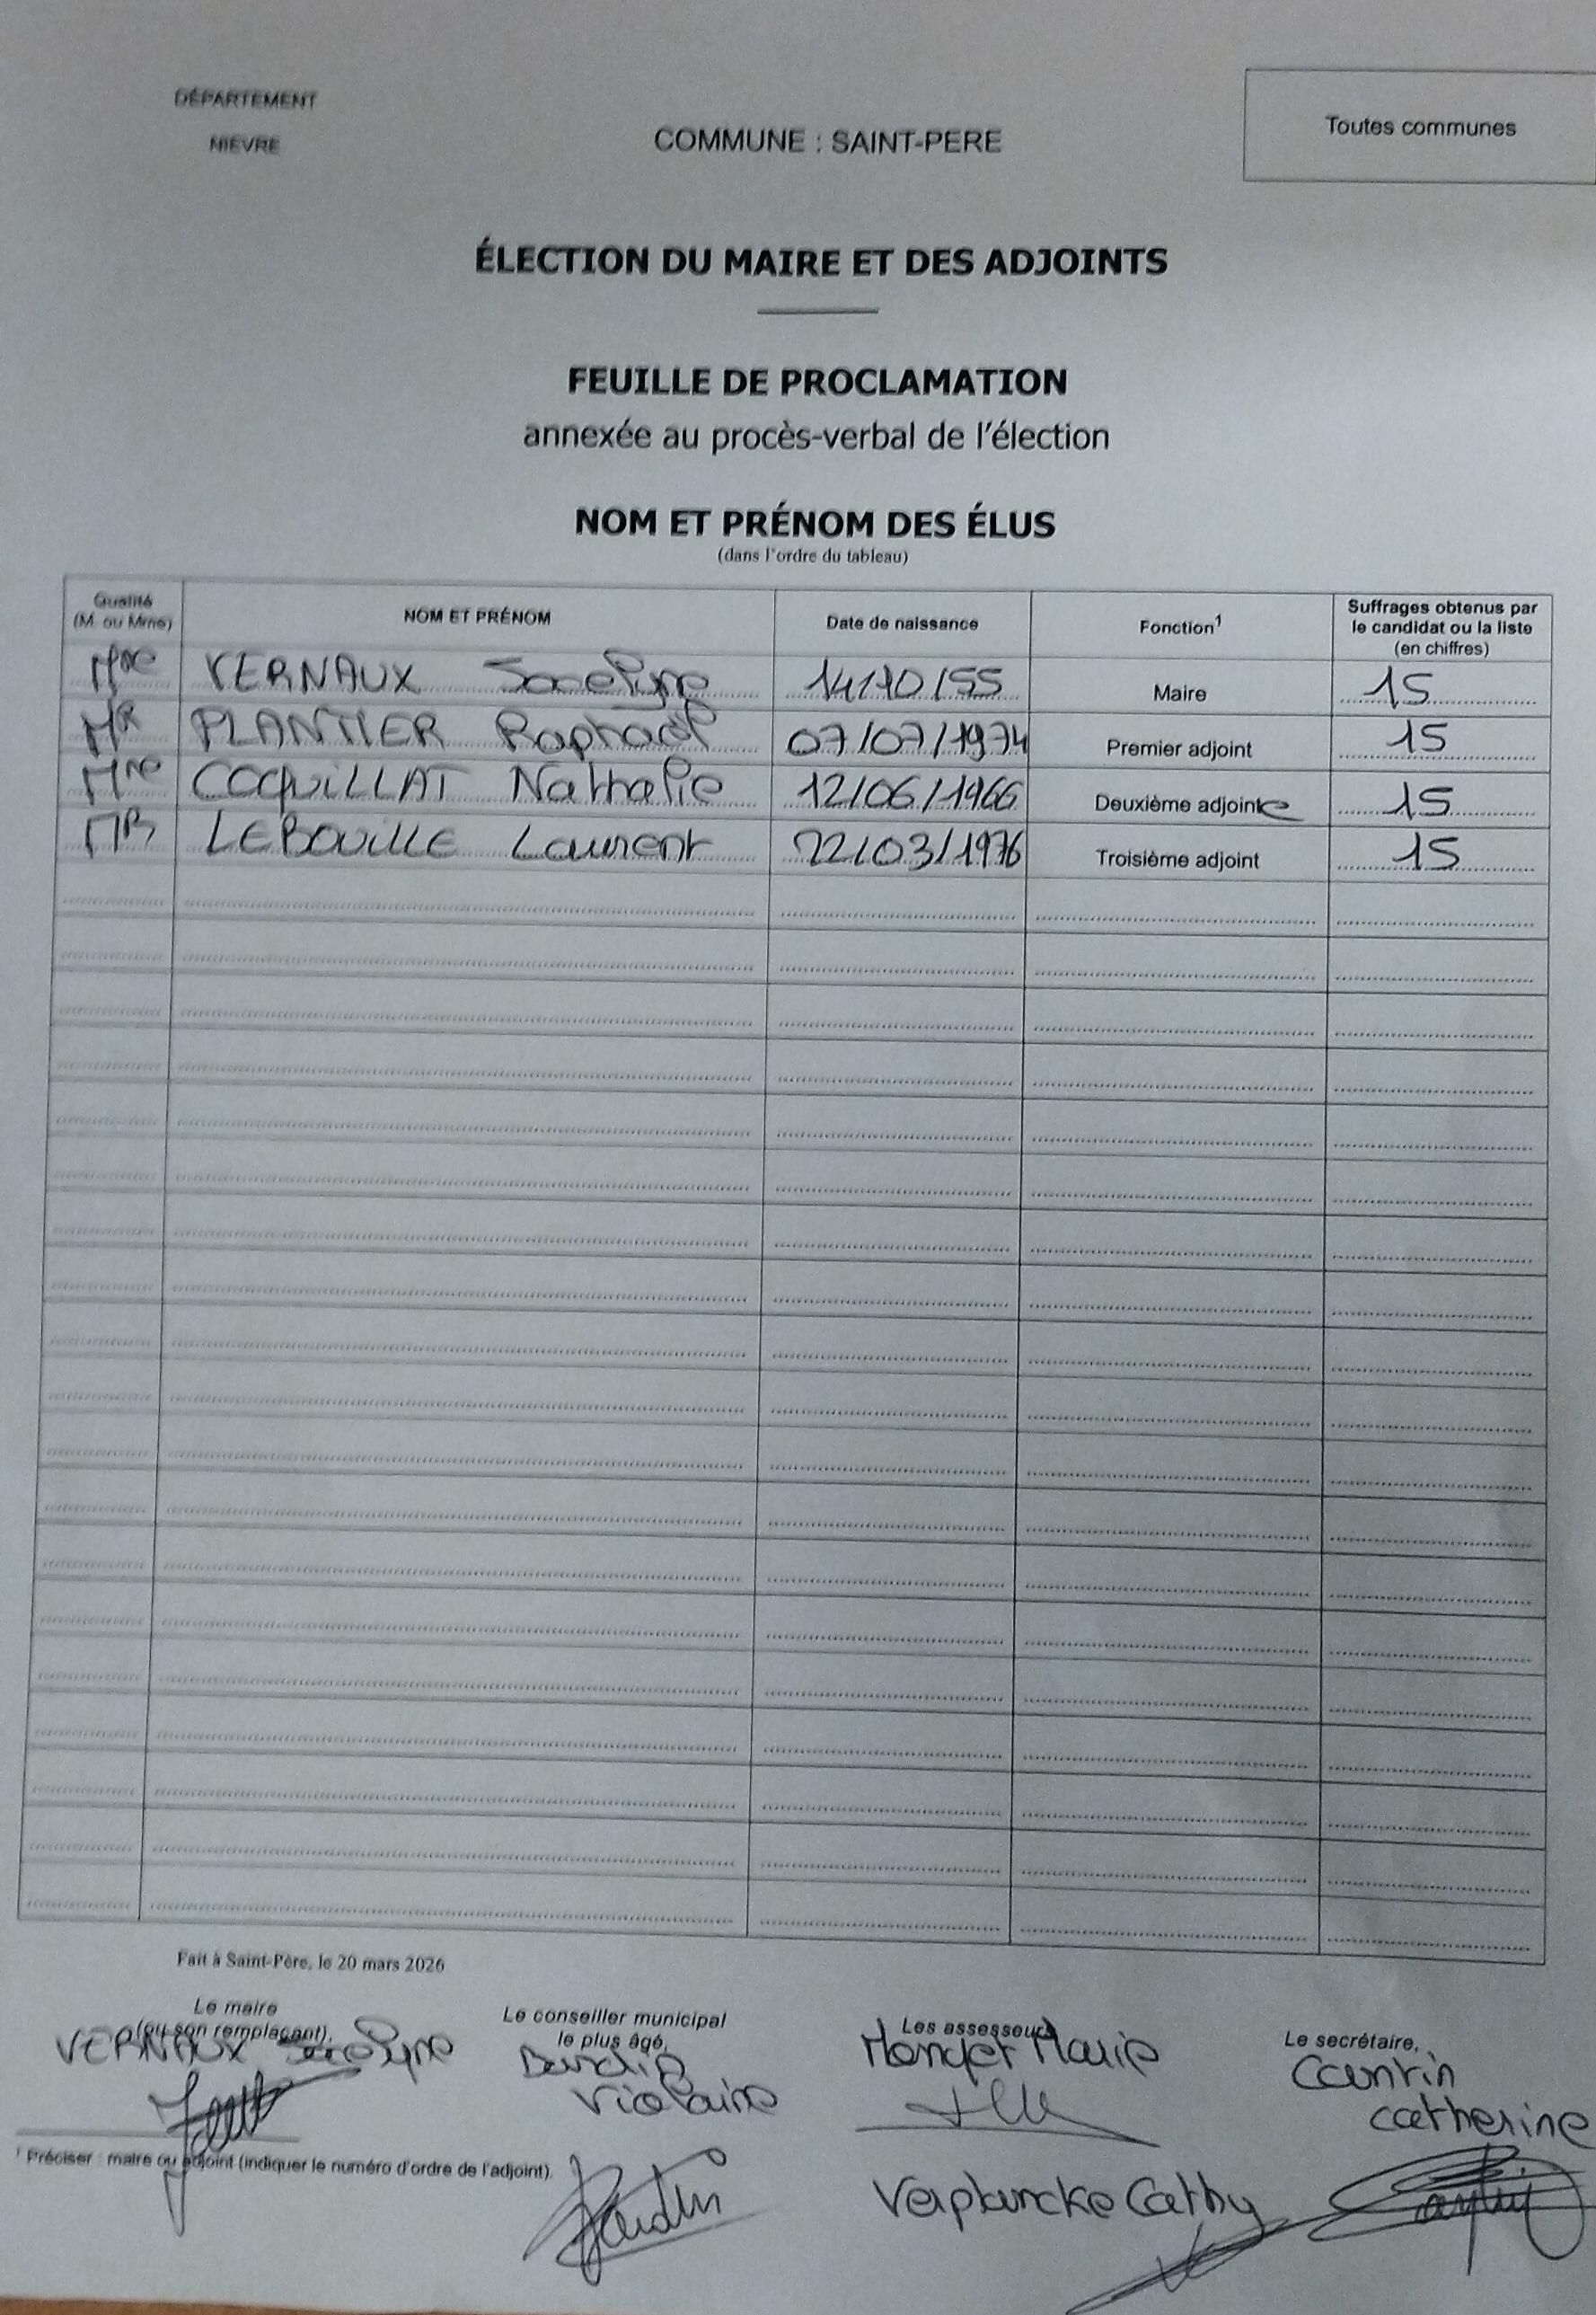 DÉPARTEMENT
NIEVRE
COMMUNE : SAINT-PERE
Toutes communes
ÉLECTION DU MAIRE ET DES ADJOINTS
FEUILLE DE PROCLAMATION
annexée au procès-verbal de l'élection
NOM ET PRÉNOM DES ÉLUS
(dans l'ordre du tableau)
Qualité (M. ou Mme) NOM ET PRÉNOM Date de naissance Fonction¹ Suffrages obtenus par le candidat ou la liste (en chiffres)
Mme VERNAUX Jocelyne 14/10/55 Maire 15
MR PLANTIER Raphaël 07/07/1974 Premier adjoint 15
Mme COQUILLAT Nathalie 12/06/1966 Deuxième adjointe 15
MR LEBOUILLE Laurent 22/03/1976 Troisième adjoint 15
Fait à Saint-Père, le 20 mars 2026
Le maire
(ou son remplaçant),
VERNAUX Jocelyne
Le conseiller municipal
le plus âgé,
Violaine
Les assesseurs,
Marie
Cathy
Le secrétaire,
Catherine
¹ Préciser : maire ou adjoint (indiquer le numéro d'ordre de l'adjoint).